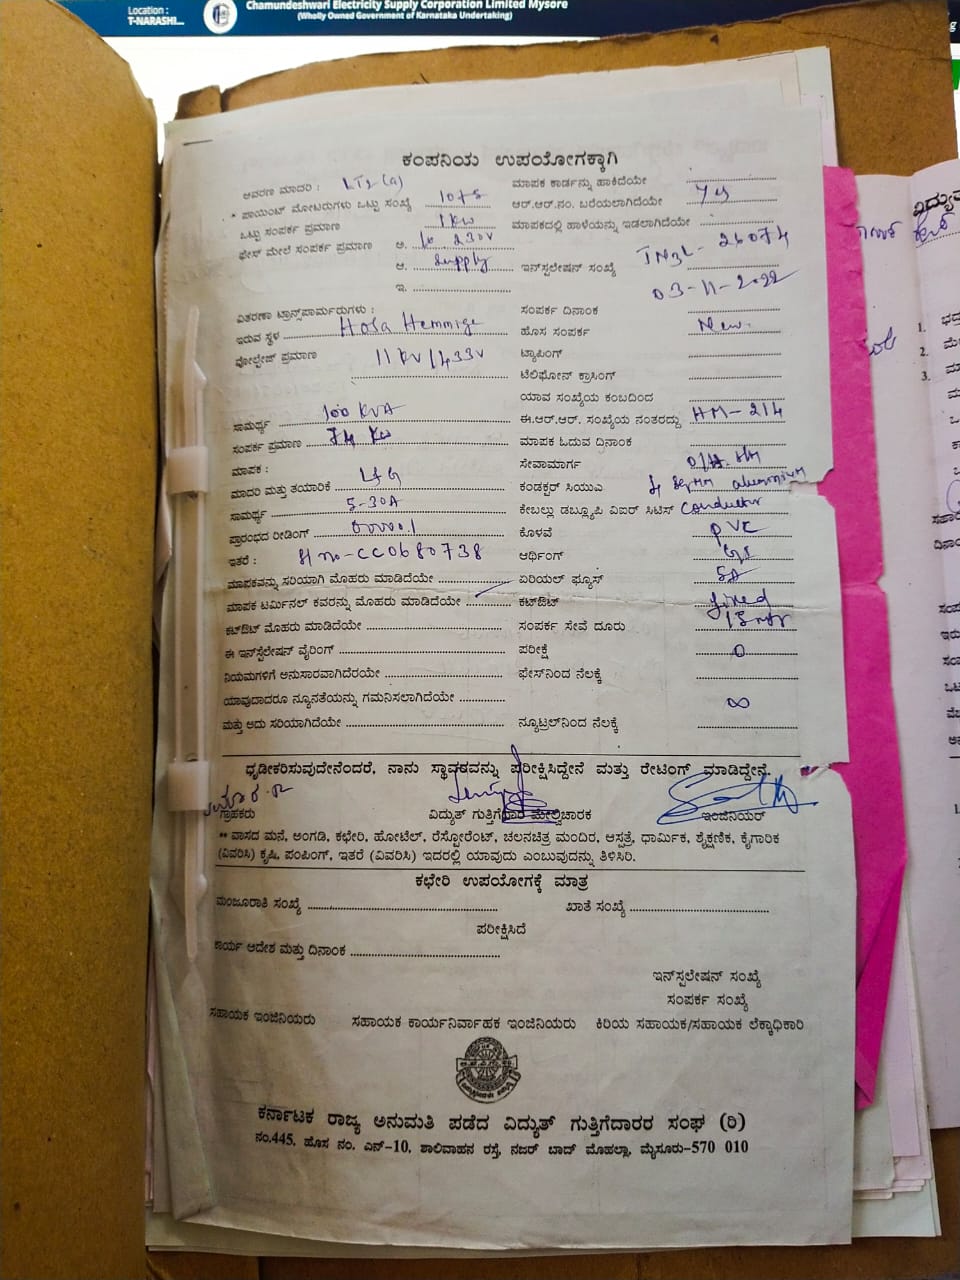 Location :
T-NARASI...
Chamundeshwari Electricity Supply Corporation Limited Mysore
(Wholly Owned Government of Karnataka Undertaking)
ಕಂಪನಿಯ ಉಪಯೋಗಕ್ಕಾಗಿ
ಆವರಣ ಮಾದರಿ : LT2(a) ಮಾಪಕ ಕಾರ್ಡನ್ನು ಹಾಕಿದೆಯೇ
* ಪಾಯಿಂಟ್ ಮೋಟರುಗಳು ಒಟ್ಟು ಸಂಖ್ಯೆ ಆರ್.ಆರ್.ನಂ. ಬರೆಯಲಾಗಿದೆಯೇ Yes
ಒಟ್ಟು ಸಂಪರ್ಕ ಪ್ರಮಾಣ 1 KW ಮಾಪಕದಲ್ಲಿ ಹಾಳೆಯನ್ನು ಇಡಲಾಗಿದೆಯೇ
ಫೇಸ್ ಮೇಲೆ ಸಂಪರ್ಕ ಪ್ರಮಾಣ ಅ. 230V
ಆ. Supply ಇನ್‌ಸ್ಟಲೇಷನ್ ಸಂಖ್ಯೆ TN2L-26074
ಇ. 03-11-2022
ವಿತರಣಾ ಟ್ರಾನ್ಸ್‌ಫಾರ್ಮರುಗಳು : ಸಂಪರ್ಕ ದಿನಾಂಕ
ಇರುವ ಸ್ಥಳ Hosa Hemmige ಹೊಸ ಸಂಪರ್ಕ New
ವೋಲ್ಟೇಜ್ ಪ್ರಮಾಣ 11 KV/433V ಟ್ಯಾಪಿಂಗ್
ಟೆಲಿಫೋನ್ ಕ್ರಾಸಿಂಗ್
ಯಾವ ಸಂಖ್ಯೆಯ ಕಂಬದಿಂದ
ಸಾಮರ್ಥ್ಯ 100 KVA ಈ.ಆರ್.ಆರ್. ಸಂಖ್ಯೆಯ ನಂತರದ್ದು HM-214
ಸಂಪರ್ಕ ಪ್ರಮಾಣ 74 KW ಮಾಪಕ ಓದುವ ದಿನಾಂಕ
ಮಾಪಕ : ಸೇವಾಮಾರ್ಗ
ಮಾದರಿ ಮತ್ತು ತಯಾರಿಕೆ L&G ಕಂಡಕ್ಟರ್ ಸಿಯುಎ 4 sqmm aluminium
ಸಾಮರ್ಥ್ಯ 5-30A ಕೇಬಲ್ಲು ಡಬ್ಲ್ಯೂಪಿ ವಿಐರ್ ಸಿಟಿಸ್ Conductor
ಪ್ರಾರಂಭದ ರೀಡಿಂಗ್ ಕೊಳವೆ PVC
ಇತರೆ : Sl no-CC0680738 ಆರ್ಥಿಂಗ್ GI
ಮಾಪಕವನ್ನು ಸರಿಯಾಗಿ ಮೊಹರು ಮಾಡಿದೆಯೇ ಏರಿಯಲ್ ಫ್ಯೂಸ್ 5A
ಮಾಪಕ ಟರ್ಮಿನಲ್ ಕವರನ್ನು ಮೊಹರು ಮಾಡಿದೆಯೇ ಕಟ್‌ಔಟ್ fixed
ಕಟ್‌ಔಟ್ ಮೊಹರು ಮಾಡಿದೆಯೇ ಸಂಪರ್ಕ ಸೇವೆ ದೂರು 15 mtr
ಈ ಇನ್‌ಸ್ಟೆಲೇಷನ್ ವೈರಿಂಗ್ ಪರೀಕ್ಷೆ 0
ನಿಯಮಗಳಿಗೆ ಅನುಸಾರವಾಗಿದೆರೆಯೇ ಫೇಸ್‌ನಿಂದ ನೆಲಕ್ಕೆ
ಯಾವುದಾದರೂ ನ್ಯೂನತೆಯನ್ನು ಗಮನಿಸಲಾಗಿದೆಯೇ ∞
ಮತ್ತು ಅದು ಸರಿಯಾಗಿದೆಯೇ ನ್ಯೂಟ್ರಲ್‌ನಿಂದ ನೆಲಕ್ಕೆ
ಧೃಡೀಕರಿಸುವುದೇನೆಂದರೆ, ನಾನು ಸ್ಥಾವರವನ್ನು ಪರೀಕ್ಷಿಸಿದ್ದೇನೆ ಮತ್ತು ರೇಟಿಂಗ್ ಮಾಡಿದ್ದೇನೆ.
ಗ್ರಾಹಕರು ವಿದ್ಯುತ್ ಗುತ್ತಿಗೆದಾರ ಮೇಲ್ವಿಚಾರಕ ಇಂಜಿನಿಯರ್
** ವಾಸದ ಮನೆ, ಅಂಗಡಿ, ಕಛೇರಿ, ಹೋಟೆಲ್, ರೆಸ್ಟೋರೆಂಟ್, ಚಲನಚಿತ್ರ ಮಂದಿರ, ಆಸ್ಪತ್ರೆ, ಧಾರ್ಮಿಕ, ಶೈಕ್ಷಣಿಕ, ಕೈಗಾರಿಕ
(ವಿವರಿಸಿ) ಕೃಷಿ, ಪಂಪಿಂಗ್, ಇತರೆ (ವಿವರಿಸಿ) ಇದರಲ್ಲಿ ಯಾವುದು ಎಂಬುವುದನ್ನು ತಿಳಿಸಿರಿ.
ಕಛೇರಿ ಉಪಯೋಗಕ್ಕೆ ಮಾತ್ರ
ಮಂಜೂರಾತಿ ಸಂಖ್ಯೆ ಖಾತೆ ಸಂಖ್ಯೆ
ಪರೀಕ್ಷಿಸಿದೆ
ಕಾರ್ಯ ಆದೇಶ ಮತ್ತು ದಿನಾಂಕ
ಇನ್‌ಸ್ಟಲೇಷನ್ ಸಂಖ್ಯೆ
ಸಂಪರ್ಕ ಸಂಖ್ಯೆ
ಸಹಾಯಕ ಇಂಜಿನಿಯರು ಸಹಾಯಕ ಕಾರ್ಯನಿರ್ವಾಹಕ ಇಂಜಿನಿಯರು ಕಿರಿಯ ಸಹಾಯಕ/ಸಹಾಯಕ ಲೆಕ್ಕಾಧಿಕಾರಿ
ಕರ್ನಾಟಕ ರಾಜ್ಯ ಅನುಮತಿ ಪಡೆದ ವಿದ್ಯುತ್ ಗುತ್ತಿಗೆದಾರರ ಸಂಘ (ರಿ)
ನಂ.445, ಹೊಸ ನಂ. ಎನ್-10, ಶಾಲಿವಾಹನ ರಸ್ತೆ, ನಜರ್ ಬಾದ್ ಮೊಹಲ್ಲಾ, ಮೈಸೂರು-570 010